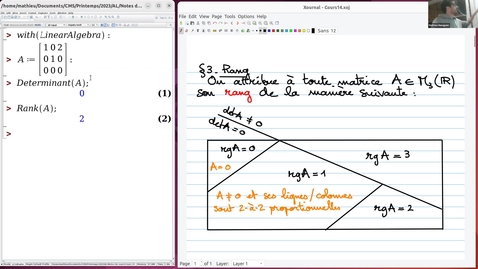 /home/mathieu/Documents/CMS/Printemps/2023/AL/Notes d
with(LinearAlgebra) :
A := [ 1 0 2
0 1 0
0 0 0 ] :
Determinant(A);
0 (1)
Rank(A);
2 (2)
Xournal - Cours14.xoj
Sans 12
§3. Rang
On attribue à toute matrice A ∈ M₃(ℝ)
son rang de la manière suivante :
det A ≠ 0
det A = 0
rg A = 0
rg A = 3
A = 0
rg A = 1
A ≠ 0 et ses lignes/colonnes
sont 2-à-2 proportionnelles
rg A = 2
Page 1 of 1 Layer: Layer 1